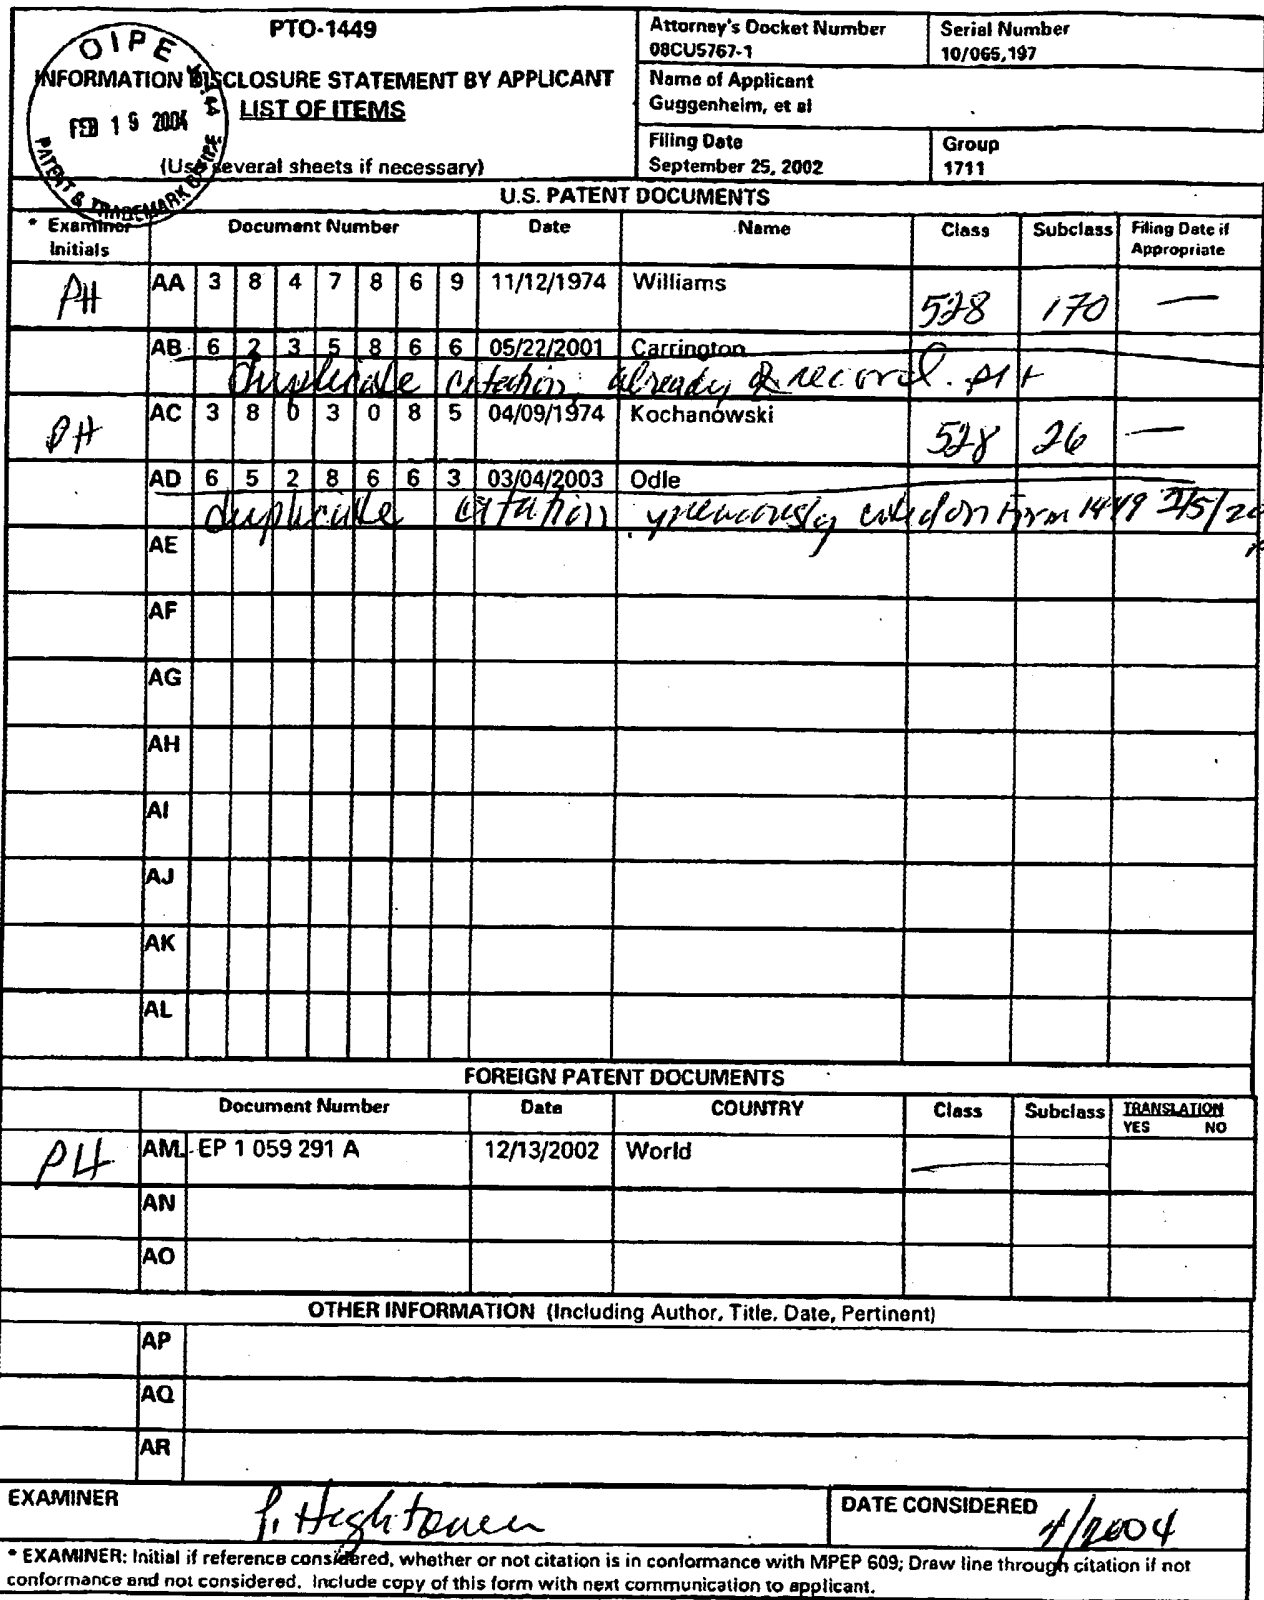 PTO-1449
INFORMATION DISCLOSURE STATEMENT BY APPLICANT
LIST OF ITEMS
(Use several sheets if necessary)
OIPE
FEB 19 2004
PATENT & TRADEMARK OFFICE
Attorney's Docket Number
08CU5767-1
Serial Number
10/065,197
Name of Applicant
Guggenheim, et al
Filing Date
September 25, 2002
Group
1711
U.S. PATENT DOCUMENTS
* Examiner Initials Document Number Date Name Class Subclass Filing Date if Appropriate
PH AA 3 8 4 7 8 6 9 11/12/1974 Williams 528 170 —
AB 6 2 3 5 8 6 6 05/22/2001 Carrington
duplicate citation, already of record. PH
PH AC 3 8 0 3 0 8 5 04/09/1974 Kochanowski 528 26 —
AD 6 5 2 8 6 6 3 03/04/2003 Odle
duplicate citation previously cited on Form 1449 2/5/20
AE
AF
AG
AH
AI
AJ
AK
AL
FOREIGN PATENT DOCUMENTS
Document Number Date COUNTRY Class Subclass TRANSLATION YES NO
PH AM EP 1 059 291 A 12/13/2002 World
AN
AO
OTHER INFORMATION (Including Author, Title, Date, Pertinent)
AP
AQ
AR
EXAMINER P. Hightower DATE CONSIDERED 4/2004
* EXAMINER: Initial if reference considered, whether or not citation is in conformance with MPEP 609; Draw line through citation if not
conformance and not considered. Include copy of this form with next communication to applicant.